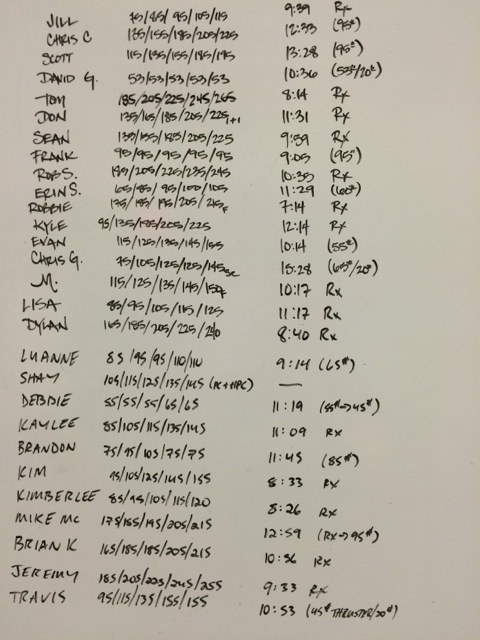 JILL 75/85/95/105/115 9:39 Rx
CHRIS C 135/155/185/205/225 12:33 (95#)
SCOTT 115/135/155/185/195 13:28 (95#)
DAVID G. 53/53/53/53/53 10:36 (53#/20#)
TOM 185/205/225/245/265 8:14 Rx
DON 135/165/185/205/225 1+1 11:31 Rx
SEAN 135/155/185/205/225 9:59 Rx
FRANK 95/95/95/95/95 9:05 (95#)
ROB S. 190/205/225/235/245 10:35 Rx
ERIN S. 65/85/95/100/105 11:29 (60#)
ROBBIE 135/185/195/205/215F 7:14 Rx
KYLE 95/135/185/205/225 12:14 Rx
EVAN 115/125/135/145/155 10:14 (55#)
CHRIS G. 75/105/125/125/145 15:28 (65#/20#)
M. 115/125/135/145/150F 10:17 Rx
LISA 85/95/105/115/125 11:17 Rx
DYLAN 165/185/205/225/240 8:40 Rx
LUANNE 85/95/95/110/110 9:14 (65#)
SHAY 105/115/125/135/145 (PC + HPC) —
DEBBIE 55/55/55/65/65 11:19 (55#→45#)
KAYLEE 85/105/115/135/145 11:09 Rx
BRANDON 75/95/105/75/75 11:45 (85#)
KIM 95/105/125/145/155 8:33 Rx
KIMBERLEE 85/95/105/115/120 8:26 Rx
MIKE MC 175/185/195/205/215 12:59 (Rx→95#)
BRIAN K 165/185/185/205/215 10:56 Rx
JEREMY 185/205/225/245/255 9:33 Rx
TRAVIS 95/115/135/155/155 10:53 (45# THRUSTER/20#)